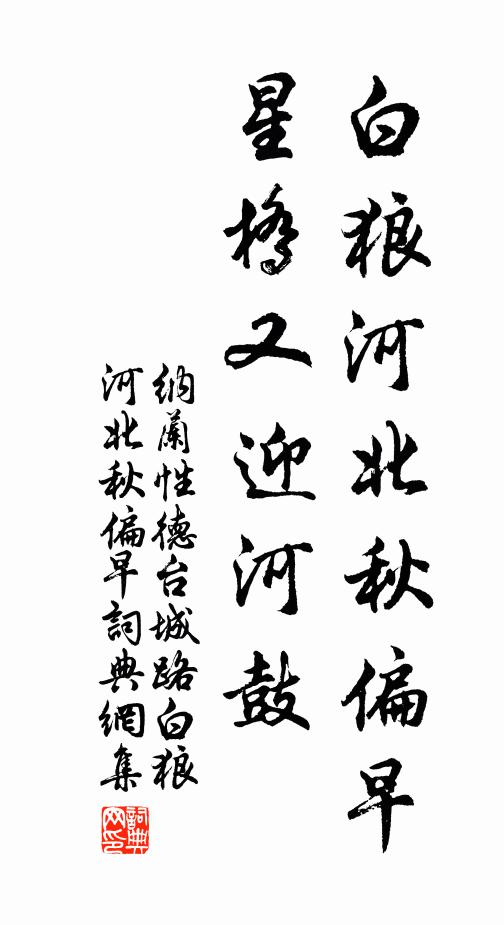 白狼河北秋偏早
星橋又迎河鼓
納蘭性德台城路白狼
河北秋偏早詞典網集
詞典
网印